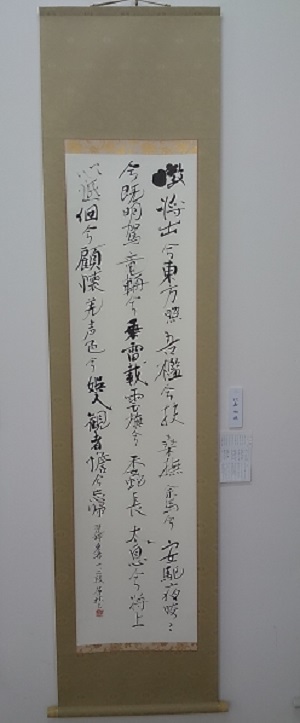 暾将出兮東方照吾檻兮扶桑撫余馬兮安駆夜皎々
兮既明駕龍輈兮乗雷載雲旗兮委蛇長太息兮将上
心低佪兮顧懐羌声色兮娯人観者憺兮忘帰